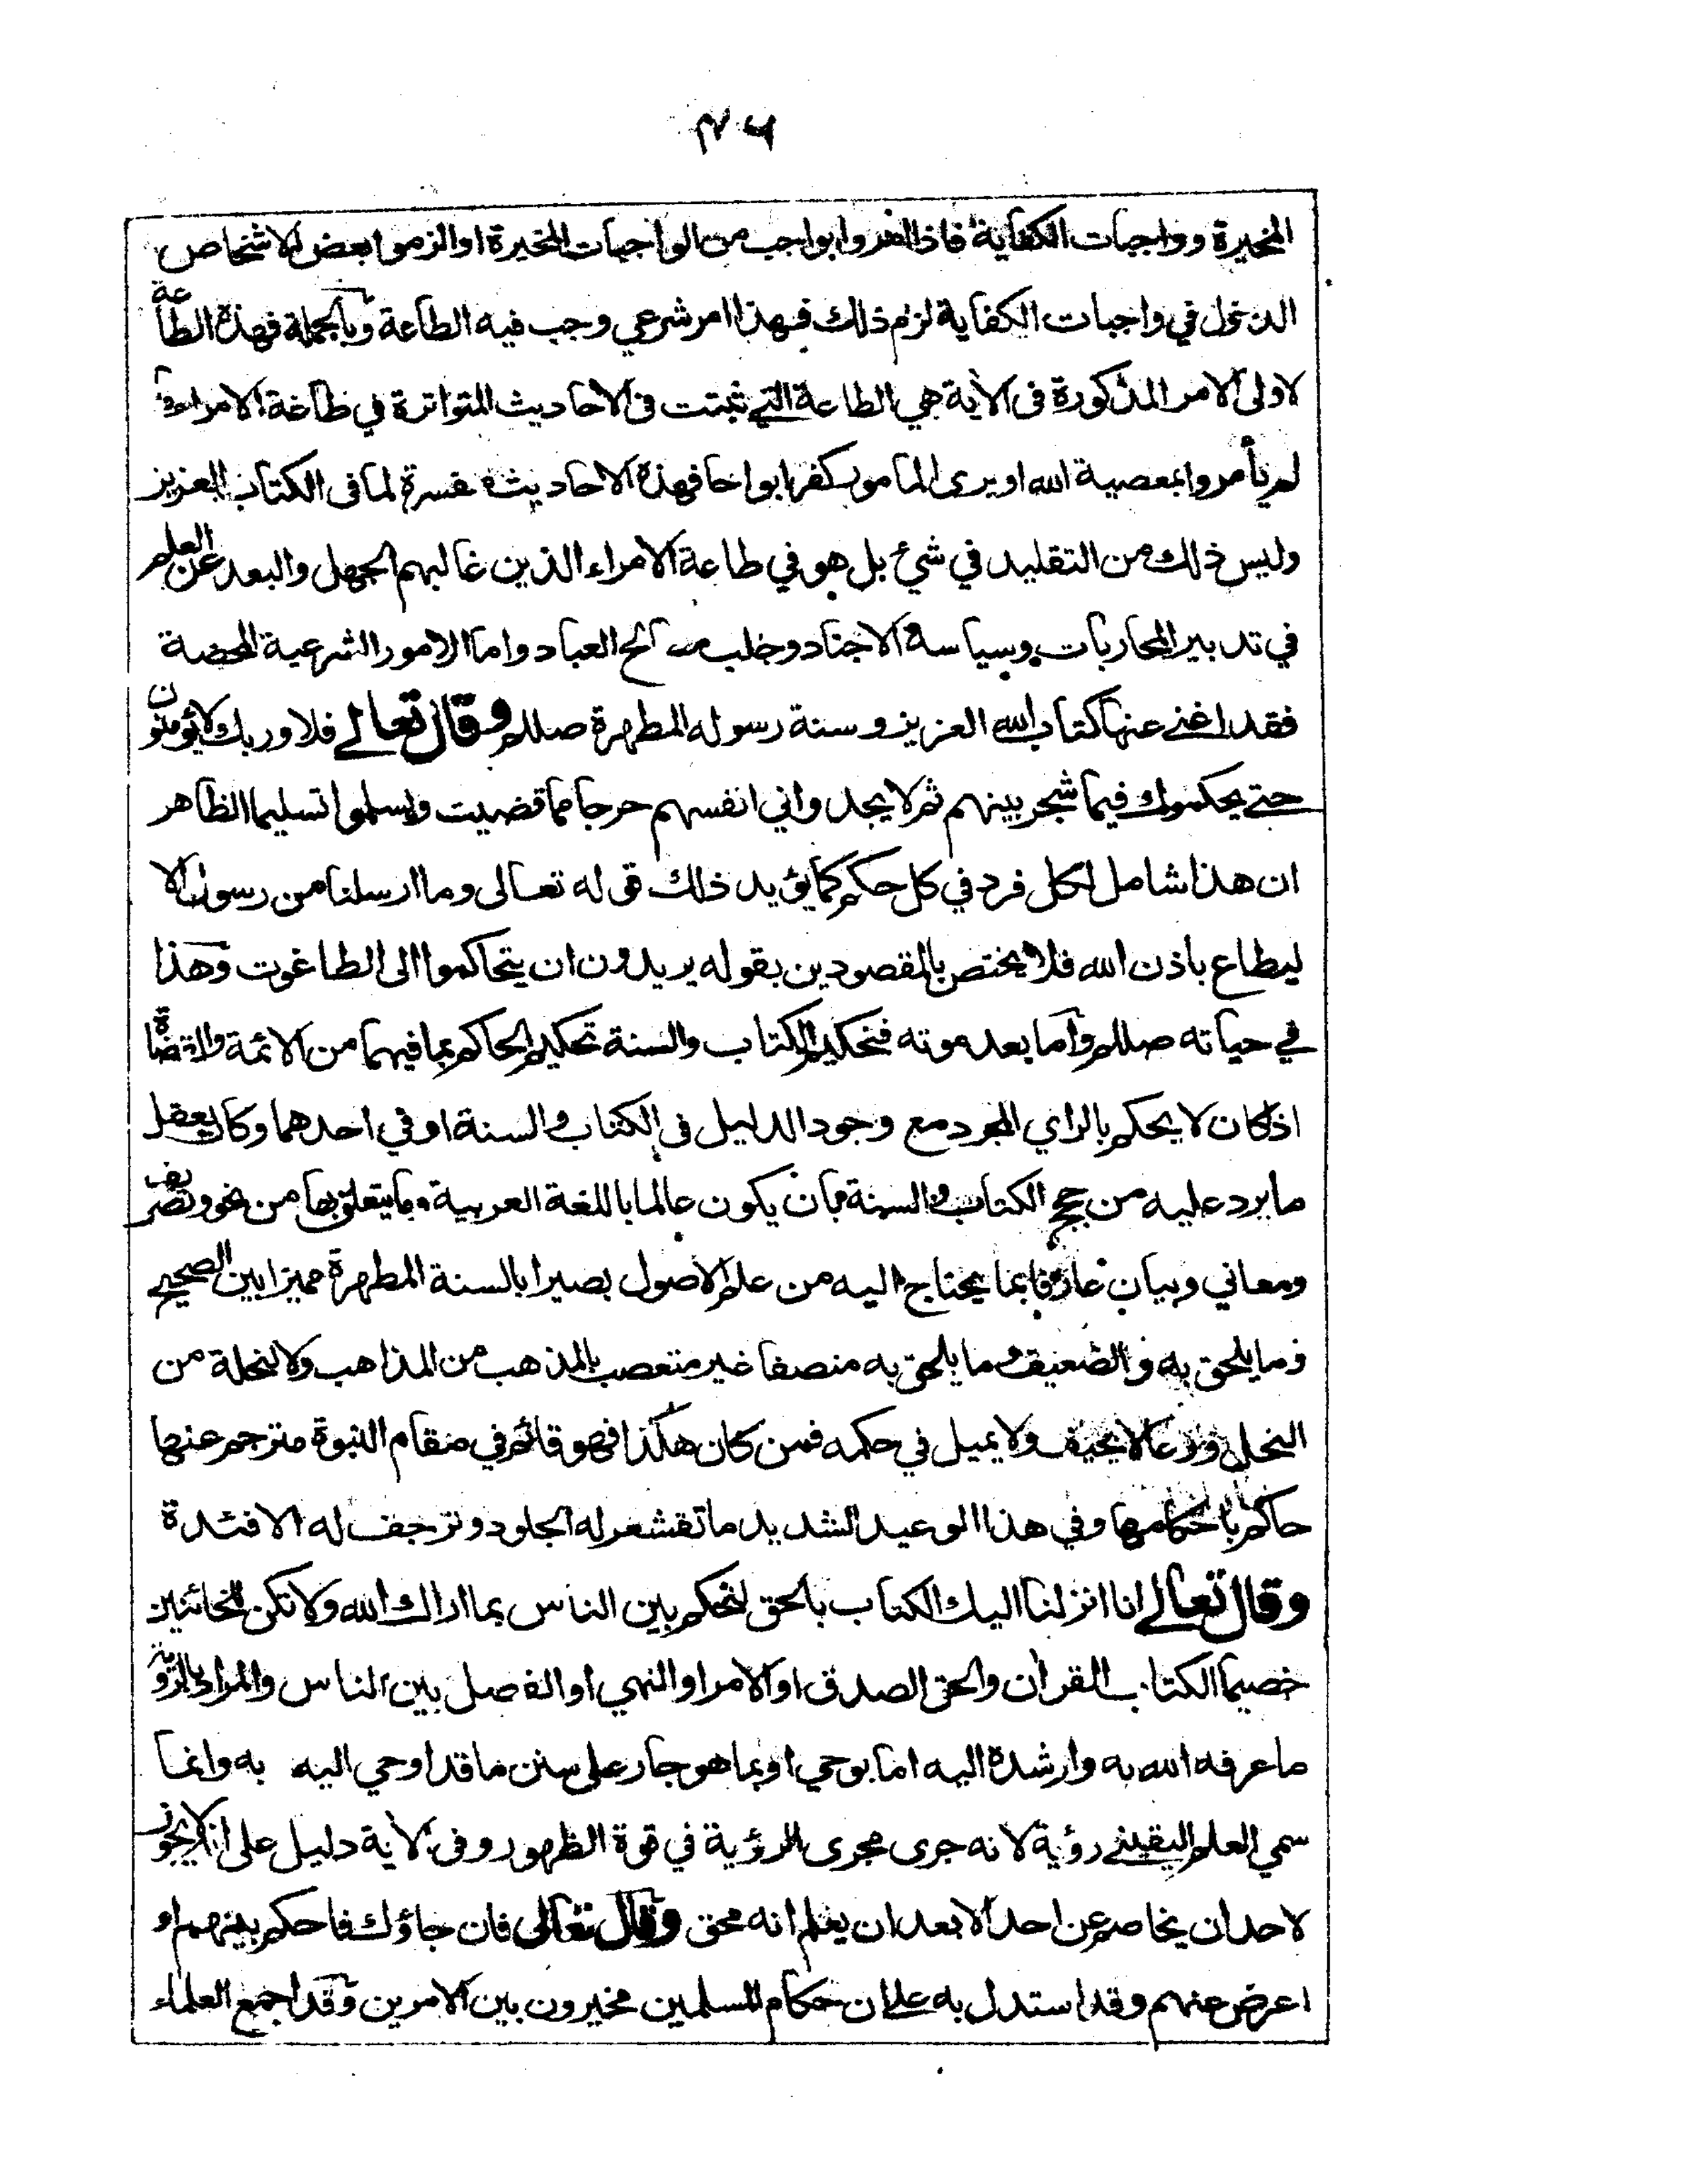 المخيرة وواجبات الكفاية فاذا امروا بواجب من الواجبات المخيرة او الزموا بعض الاشخاص
الدخول في واجبات الكفاية لزم ذلك فهذا امر شرعي وجب فيه الطاعة وبالجملة فهذه الطاعة
لاولى الامر المذكورة فى الآية هي الطاعة التي ثبتت فى الاحاديث المتواترة في طاعة الامراء ما
لم يأمروا بمعصية الله او يرى المامور كفرا بواحا فهذه الاحاديث مفسرة لما فى الكتاب العزيز
وليس ذلك من التقليد في شئ بل هو في طاعة الامراء الذين غالبهم الجهل والبعد عن العلم
في تدبير المحاربات وسياسة الاجناد وجلب مصالح العباد واما الامور الشرعية المحضة
فقد اغنى عنها كتاب الله العزيز وسنة رسوله المطهرة صللم وقال تعالى فلا وربك لا يؤمنون
حتى يحكموك فيما شجر بينهم ثم لا يجدوا في انفسهم حرجا مما قضيت ويسلموا تسليما الظاهر
ان هذا شامل لكل فرد في كل حكم كما يؤيد ذلك قوله تعالى وما ارسلنا من رسول الا
ليطاع باذن الله فلا يختص بالمقصودين بقوله يريدون ان يتحاكموا الى الطاغوت وهذا
في حياته صللم واما بعد موته فتحكيم الكتاب والسنة تحكيم الحاكم بما فيهما من الائمة والقضاة
اذا كان لا يحكم بالراي المجرد مع وجود الدليل فى الكتاب والسنة او في احدهما وكان يعقل
ما يرد عليه من حجج الكتاب والسنة بان يكون عالما باللغة العربية وما يتعلق بها من نحو وتصريف
ومعاني وبيان عارفا بما يحتاج اليه من علم الاصول بصيرا بالسنة المطهرة مميزا بين الصحيح
وما يلحق به والضعيف وما يلحق به منصفا غير متعصب لمذهب من المذاهب ولا لنحلة من
النحل ورعا لا يحيف ولا يميل في حكمه فمن كان هكذا فهو قائم في مقام النبوة مترجم عنها
حاكم باحكامها وفي هذا الوعيد الشديد ما تقشعر له الجلود وترجف له الافئدة
وقال تعالى انا انزلنا اليك الكتاب بالحق لتحكم بين الناس بما اراك الله ولا تكن للخائنين
خصيما الكتاب القرأن والحق الصدق او الامر او النهي او الفصل بين الناس والمراد بالرؤية
ما عرفه الله به وارشده اليه اما بوحي او بما هو جار على سنن ما قد اوحي اليه به وانما
سمي العلم اليقيني رؤية لانه جرى مجرى الرؤية في قوة الظهور وفى الآية دليل على انه لا يجوز
لاحد ان يخاصم عن احد الا بعد ان يعلم انه محق وقال تعالى فان جاؤك فاحكم بينهم او
اعرض عنهم وقد استدل به على ان حكام المسلمين مخيرون بين الامرين وقد اجمع العلماء